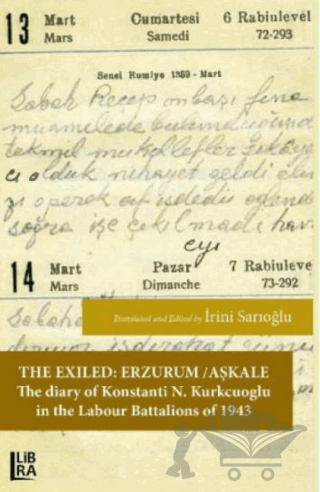 13 Mart Cumartesi 6 Rabiulevel
Mars Samedi 72-293
Senei Rumiye 1359 - Mart
Sabah Recep onbaşı fena
muamelede bulunduğundan
tekmil mükellefler şikâye
cı olduk nihayet geldi eli
zi operek af istedi
sogra işe çıkılmadı hava
eyi
14 Mart Pazar 7 Rabiuleve
Mars Dimanche 73-292
Sabah
Translated and Edited by İrini Sarıoğlu
THE EXILED: ERZURUM /AŞKALE
The diary of Konstanti N. Kurkcuoglu
in the Labour Battalions of 1943
LiB
RA